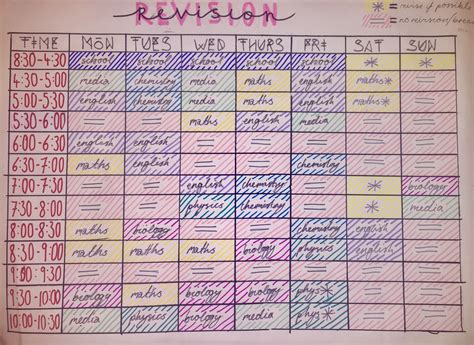 REVISION
revision
= revise if possible
= no revision/break
TIME MON TUES WED THURS FRI SAT SUN
8:30-4:30 school school school school school
4:30-5:00 media chemistry media maths maths maths*
5:00-5:30 english chemistry english maths english maths*
5:30-6:00 maths english media
6:00-6:30 english english
6:30-7:00 maths english chemistry
7:00-7:30 english chemistry biology
7:30-8:00 physics chemistry media
8:00-8:30 maths biology chemistry english
8:30-9:00 maths maths maths biology physics english
9:00-9:30
9:30-10:00 biology maths biology biology phys*
10:00-10:30 media physics biology media phys*